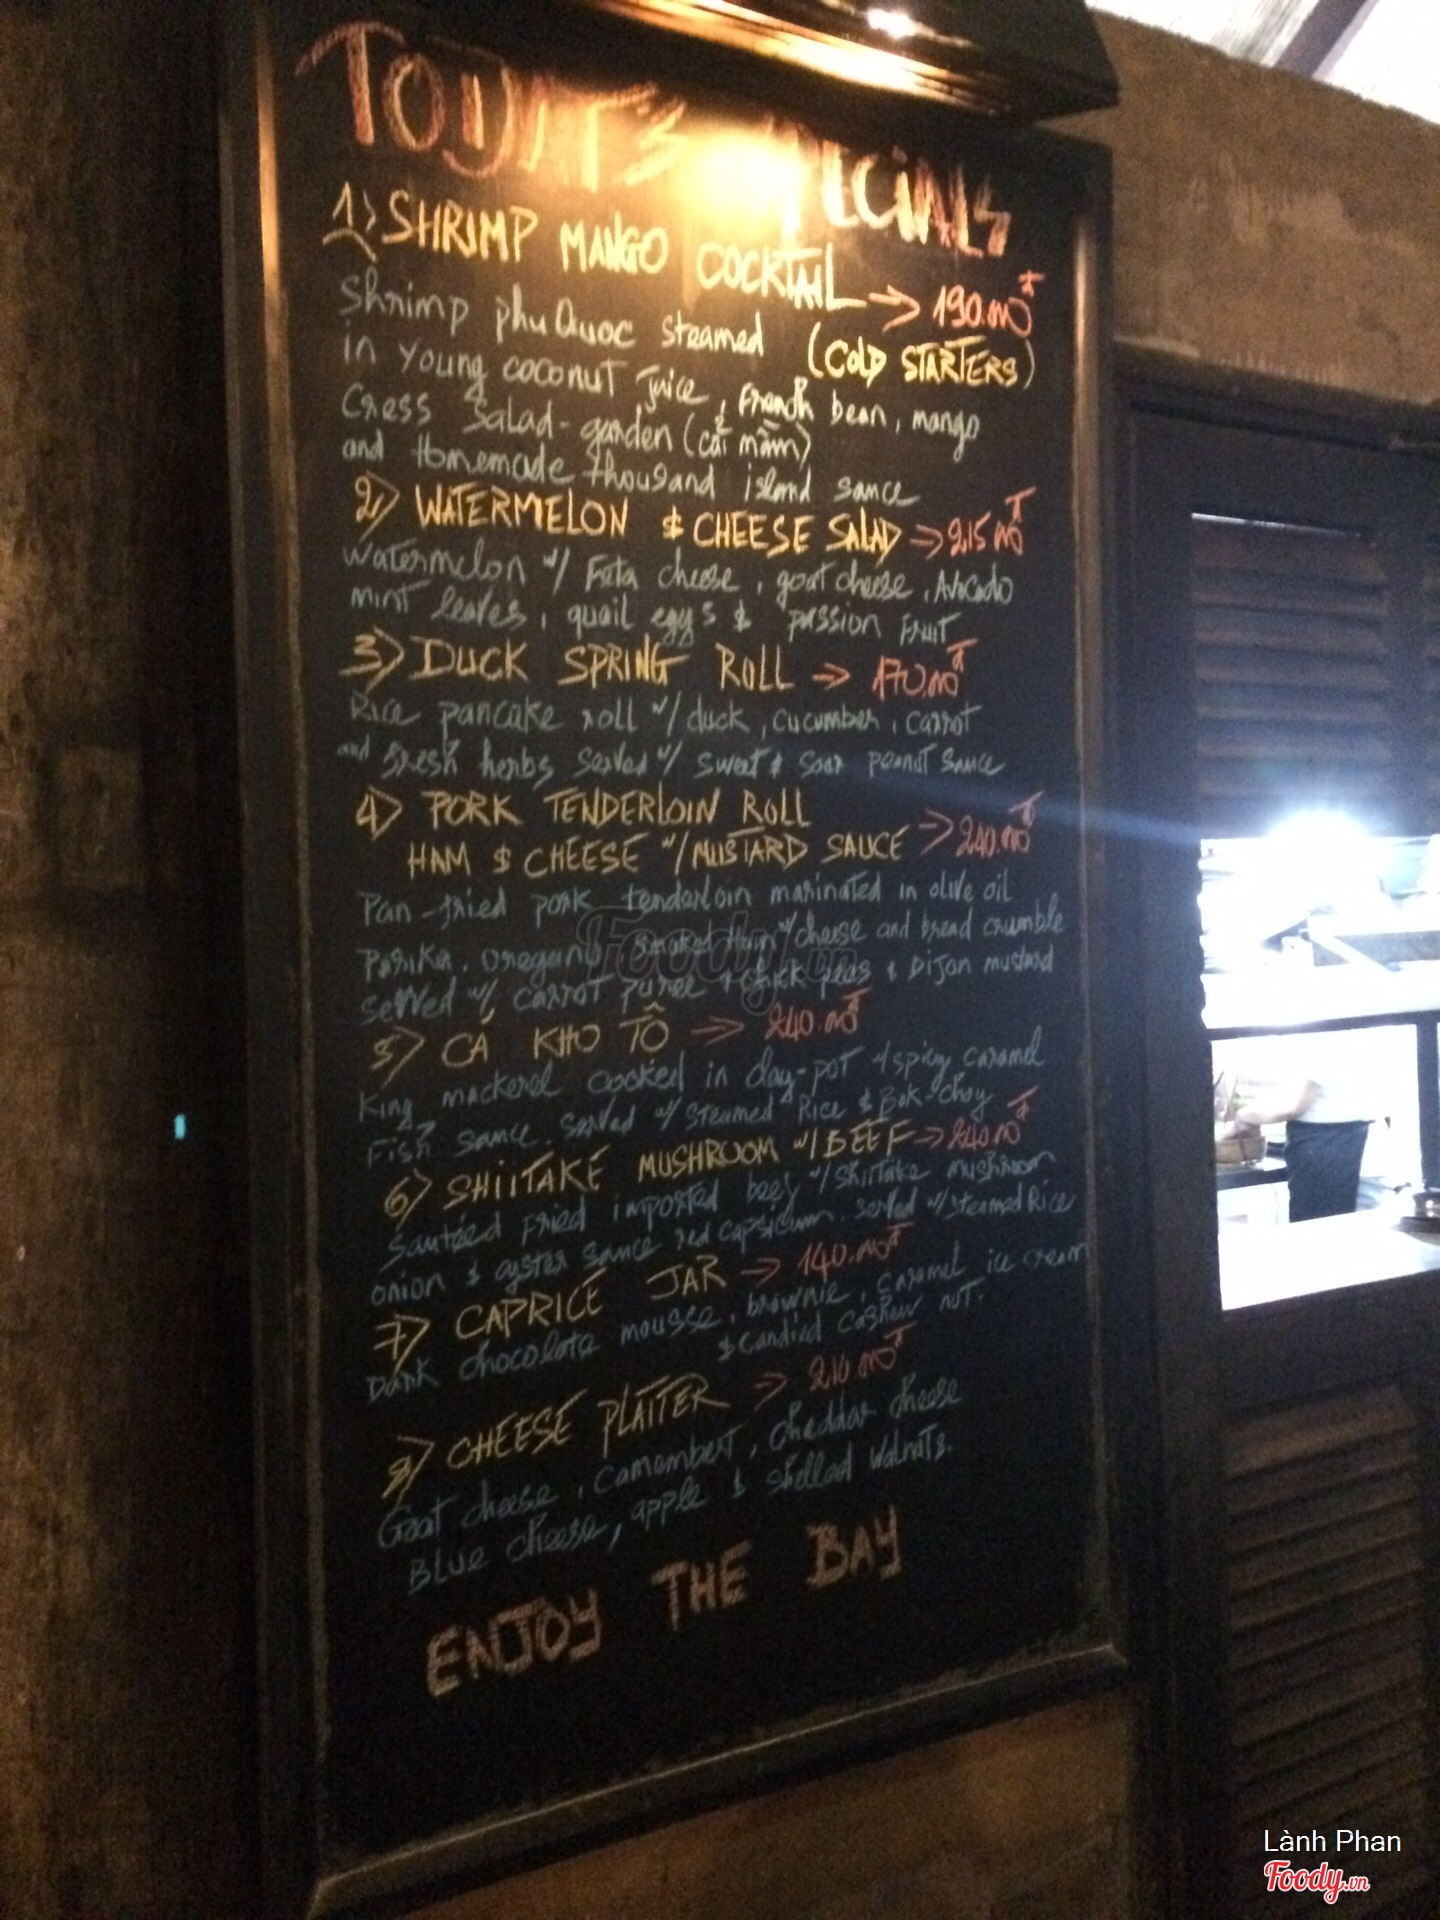 TODAY'S SPECIALS
1) SHRIMP MANGO COCKTAIL → 190.000đ
Shrimp phu Quoc steamed (COLD STARTERS)
in young coconut juice, French bean, mango
Cress Salad-garden (cải mầm)
and Homemade thousand island sauce
2) WATERMELON & CHEESE SALAD → 215.000đ
Watermelon w/ Feta cheese, goat cheese, Avocado
mint leaves, quail eggs & passion Fruit
3) DUCK SPRING ROLL → 170.000đ
Rice pancake roll w/ duck, cucumber, carrot
and fresh herbs served w/ sweet & sour peanut sauce
4) PORK TENDERLOIN ROLL
HAM & CHEESE w/ MUSTARD SAUCE → 240.000đ
Pan-fried pork tenderloin marinated in olive oil
Parika. oregano smoked Ham w/ cheese and bread crumble
served w/ carrot puree & chick peas & Dijon mustard
5) CÁ KHO TỘ → 240.000đ
King mackerel cooked in clay-pot w/ spicy caramel
Fish sauce. served w/ steamed Rice & Bok-choy
6) SHIITAKE MUSHROOM w/ BEEF → 240.000đ
Sautéed Fried imported beef w/ shiitake mushroom
onion & oyster sauce red capsicum. served w/ steamed Rice
7) CAPRICE JAR → 140.000đ
Dark chocolate mousse, brownie, caramel ice cream
& candied cashew nut.
8) CHEESE PLATTER → 210.000đ
Goat cheese, camembert, cheddar cheese
Blue cheese, apple & shelled walnuts.
ENJOY THE BAY
Foody.vn
Lành Phan
Foody.vn